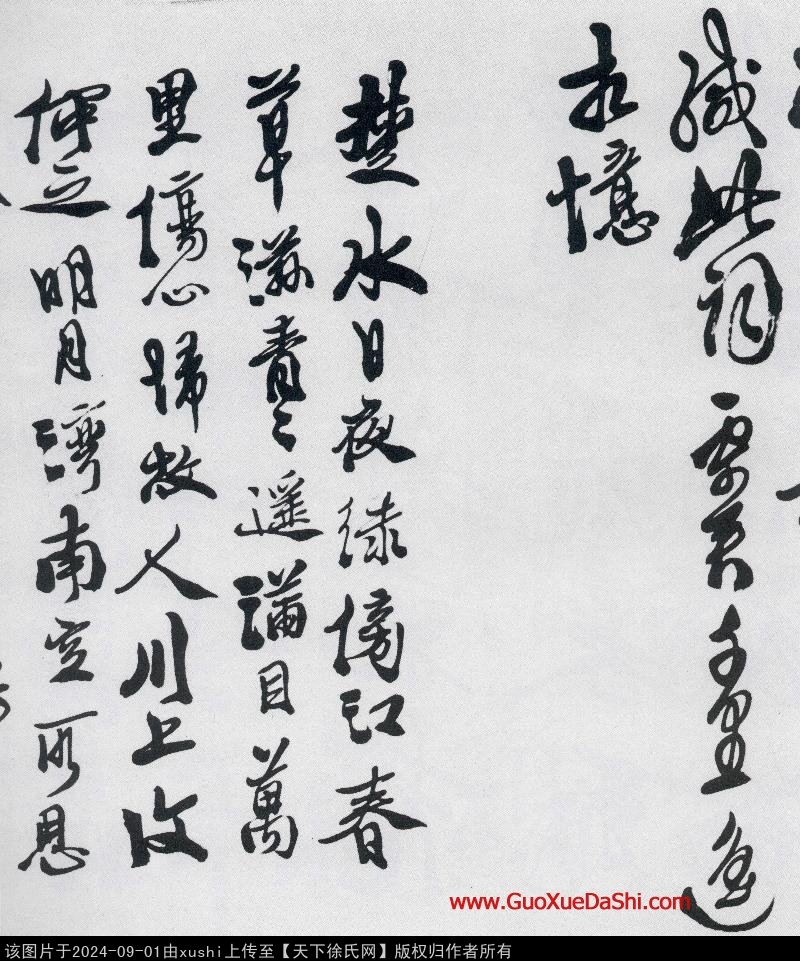 緘此詞君千里遥
相憶
楚水日夜綠傍江春
草滋青〻遥滿目萬
里傷心歸故人川上復
何之明月灣南空所思
www.GuoXueDaShi.com
该图片于2024-09-01由xushi上传至【天下徐氏网】版权归作者所有